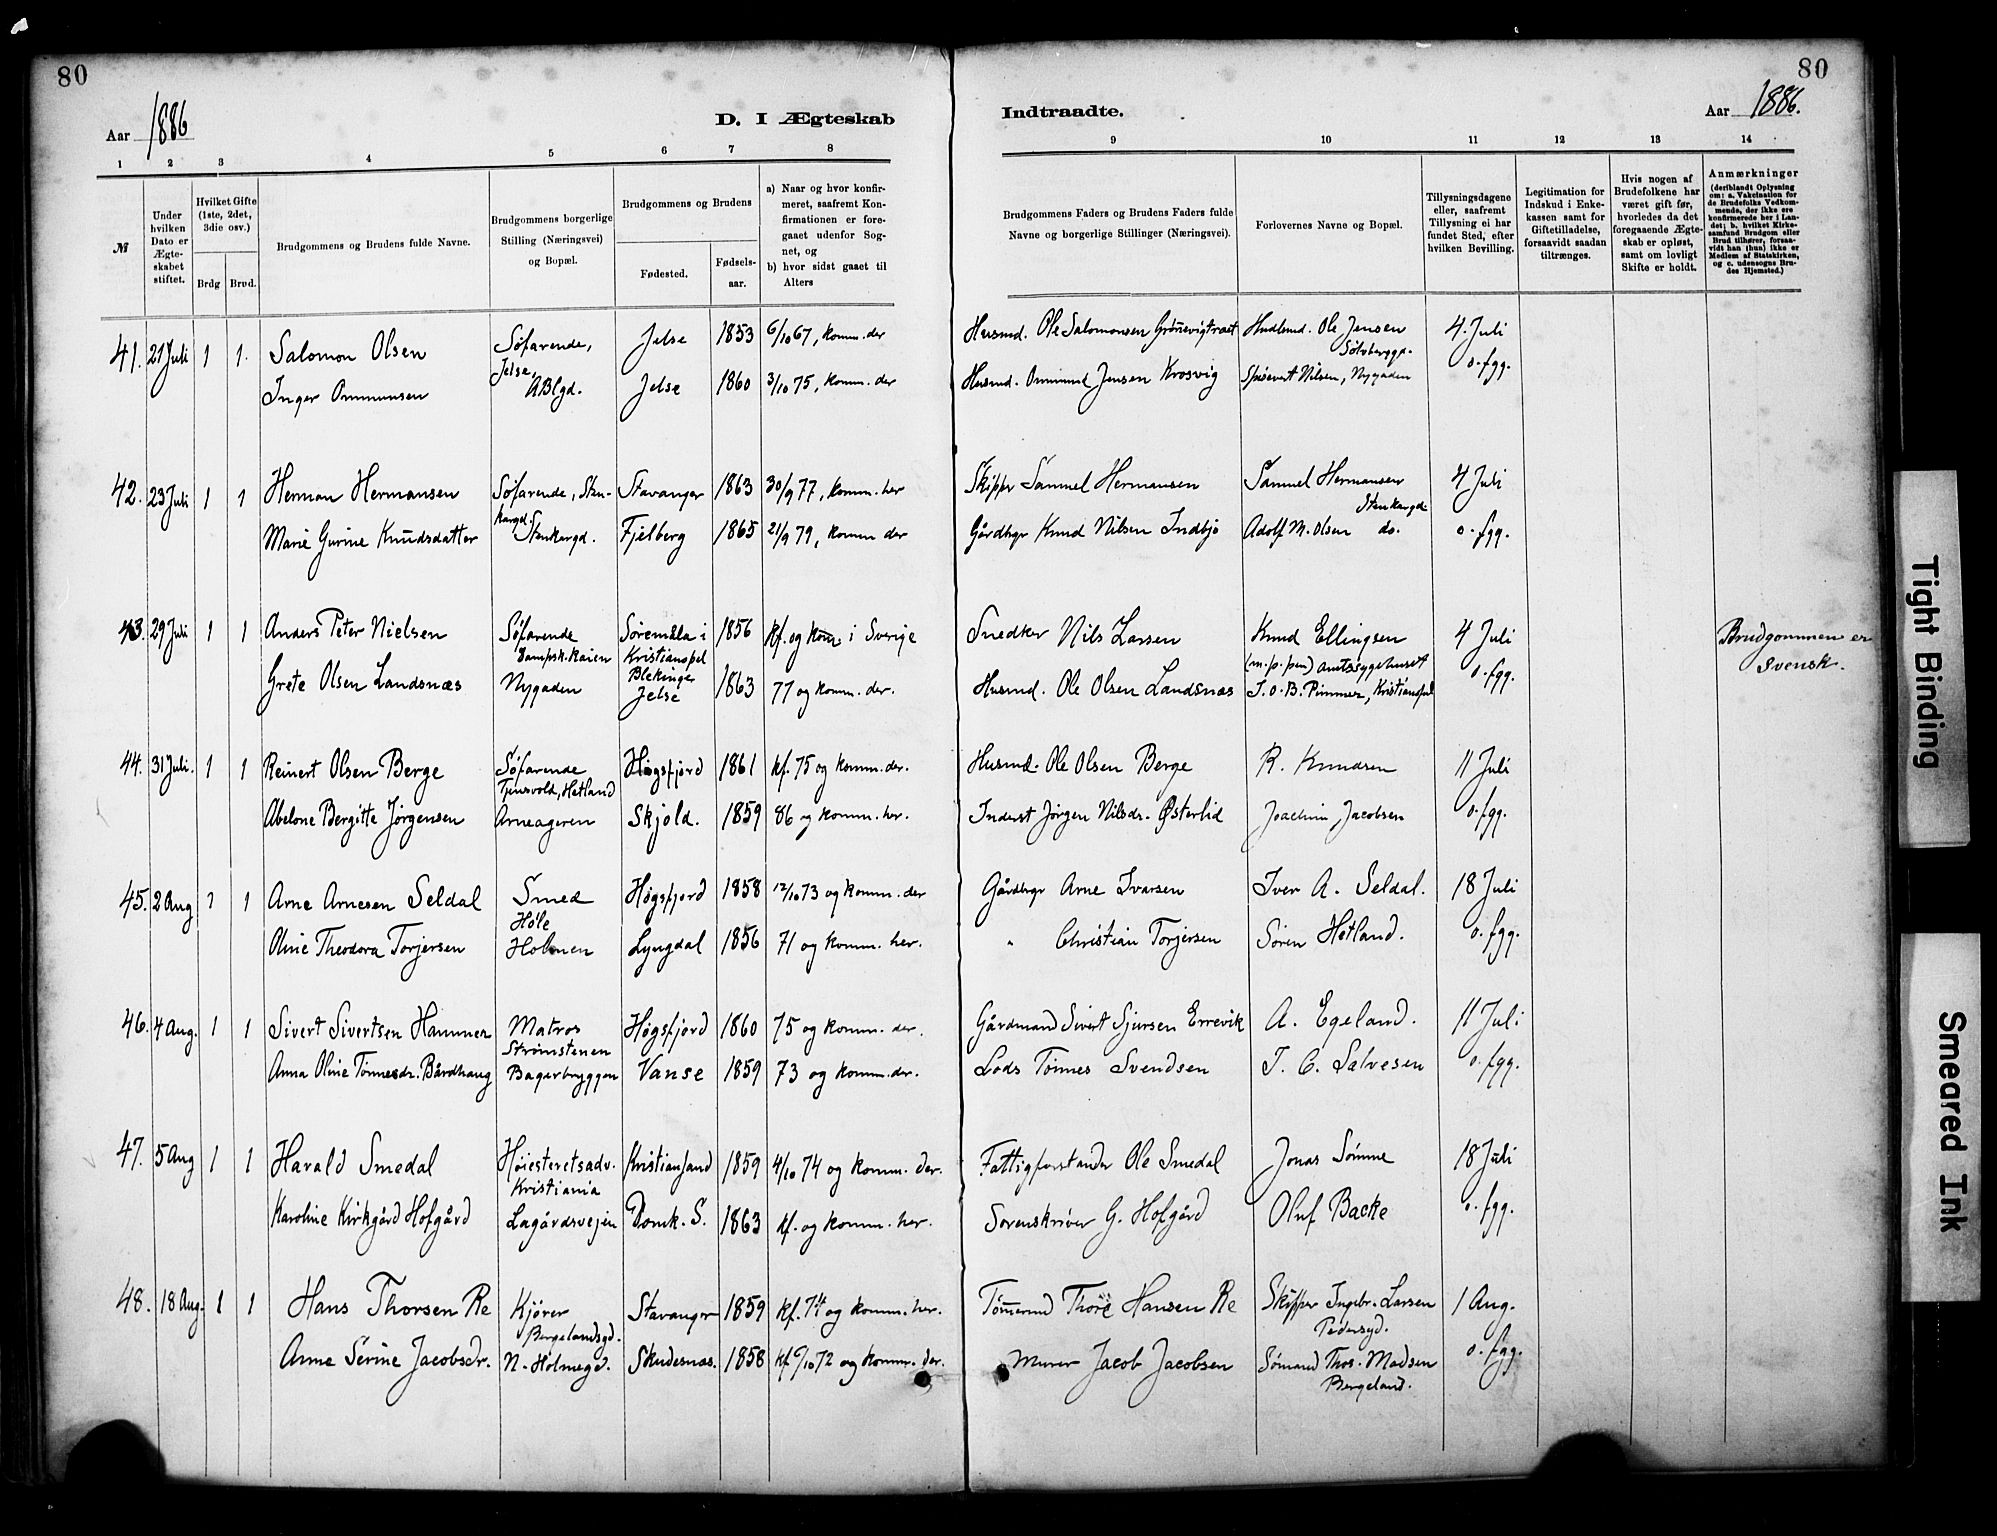 80
Aar 1886
D. I Ægteskab
1 2 3 4 5 6 7 8
№
Under hvilken Dato er Ægte-skabet stiftet.
Hvilket Gifte (1ste, 2det, 3die osv.)
Brdg Brud.
Brudgommens og Brudens fulde Navne.
Brudgommens borgerlige Stilling (Næringsvei) og Bopæl.
Brudgommens og Brudens
Fødested.
Fødsels-aar.
a) Naar og hvor konfir-meret, saafremt Kon-firmationen er fore-gaaet udenfor Sog-net, og
b) hvor sidst gaaet til Alters
41. 21 Juli 1 1. Salomon Olsen Søfarende, Jelse 1853 6/10 67, komm. der
Jelse,
Inger Ommunsen ABlgd. Jelse 1860 3/10 75, komm. der
42. 23 Juli 1 1 Herman Hermansen Søfarende, Sten- Stavanger 1863 30/9 77, komm. her
kargd.
Marie Gurine Knudsdatter Stenkargd. Fjelberg 1865 21/9 79, komm der
43. 29 Juli 1 1 Anders Peter Nielsen Søfarende Søremåla i 1856 kf. og kom. i Sverige
Dampsk.kaien Kristianopel
Blekinger
Grete Olsen Landsnæs Nygaden Jelse 1863 77 og komm. der.
44. 31 Juli. 1 1 Reinert Olsen Berge Søfarende Høgsfjord 1861 kf. 75 og komm. der.
Tjensvold, Hetland
Abelone Bergitte Jørgensen Arneageren Skjold. 1859 86 og komm. her.
45. 2 Aug 1 1 Arne Arnesen Seldal Smed Høgsfjord 1858 12/10 73 og komm. der
Høle
Oline Theodora Torjersen Holmen Lyngdal 1856 71 og komm. her.
46. 4 Aug. 1 1 Sivert Sivertsen Hammer Matros Høgsfjord 1860 75 og komm. der.
Strømstenen
Anna Oline Tønnesdr. Bårdhaug Bagarbryggen Vanse 1859 73 og komm. der.
47. 5 Aug 1 1 Harald Smedal Høiesteretsadv. Kristiansand 1859 4/10 74 og komm. der.
Kristiania
Karoline Kirkgård Hofgård Lagårdsvejen Domk. S. 1863 kf. og komm. her.
48. 18 Aug. 1 1 Hans Thorsen Re Kjører Stavanger 1859 kf. 74 og komm. her.
Bergelandsgd.
Anne Serine Jacobsdr. N. Holmegd. Skudesnæs. 1858 kf /10 72 og komm. der.
80
Indtraadte.
Aar 1886.
9 10 11 12 13 14
Brudgommens Faders og Brudens Faders fulde Navne og borgerlige Stillinger (Næringsvei).
Forlovernes Navne og Bopæl.
Tillysningsdagene eller, saafremt Tillysning ei har fundet Sted, efter hvilken Bevilling.
Legitimation for Indskud i Enke-kassen samt for Giftetilladelse, forsaavidt saadan tiltrænges.
Hvis nogen af Brudefolkene har været gift før, hvorledes da det foregaaende Ægte-skab er opløst, samt om lovligt Skifte er holdt.
Anmærkninger
(deriblandt Oplysning om: a. Vakcination for de Brudefolks Vedkom-mende, der ikke ere konfirmerede her i Lan-det; b. hvilket Kirke-samfund Brudgom eller Brud tilhører, forsaa-vidt han (hun) ikke er Medlem af Statskirken, og c. udensogns Bru-des Hjemsted.)
Husmd. Ole Salomonsen Grønevigtræet Hudlmd. Ole Jensen 4. Juli
Sølvberggd.
Husmd. Ommund Jensen Krosvig Spisevert Nilsen, Nygaden o. fgg.
Skipper Sammel Hermansen Samuel Hermansen 4 Juli
Stenkargd.
Gårdbgr Knud Nilsen Indbjo Adolf M. Olsen do. o. fgg.
Snedker Nils Larsen Knud Ellingsen 4 Juli Brudgommen er
(m. p. pen) amtssygehuset Svensk.
Husmd. Ole Olsen Landsnæs J. O. B. Pimmer, Kristianopel o. fgg.
Husmd. Ole Olsen Berge R. Knudsen 11 Juli
Inderst Jørgen Nilsdr. Østerlid Joachim Jacobsen o. fgg.
Gårdbgr Arne Ivarsen Iver A. Seldal. 18 Juli
" Christian Torjersen Søren Hetland. o. fgg.
Gårdmand Sivert Sjursen Errevik A. Egeland. 11 Juli
Lods Tønnes Svendsen T. C. Salvesen o. fgg.
Fattigforstander Ole Smedal Jonas Sømme 18 Juli
Sorenskriver G. Hofgård Oluf Backe o. fgg.
Tømmermd Thore Hansen Re Skipper Ingebr. Larsen 1 Aug.
Pedersgd.
Murer Jacob Jacobsen Sømand Thos. Madsen o. fgg.
Bergeland.
Tight Binding
Smeared Ink